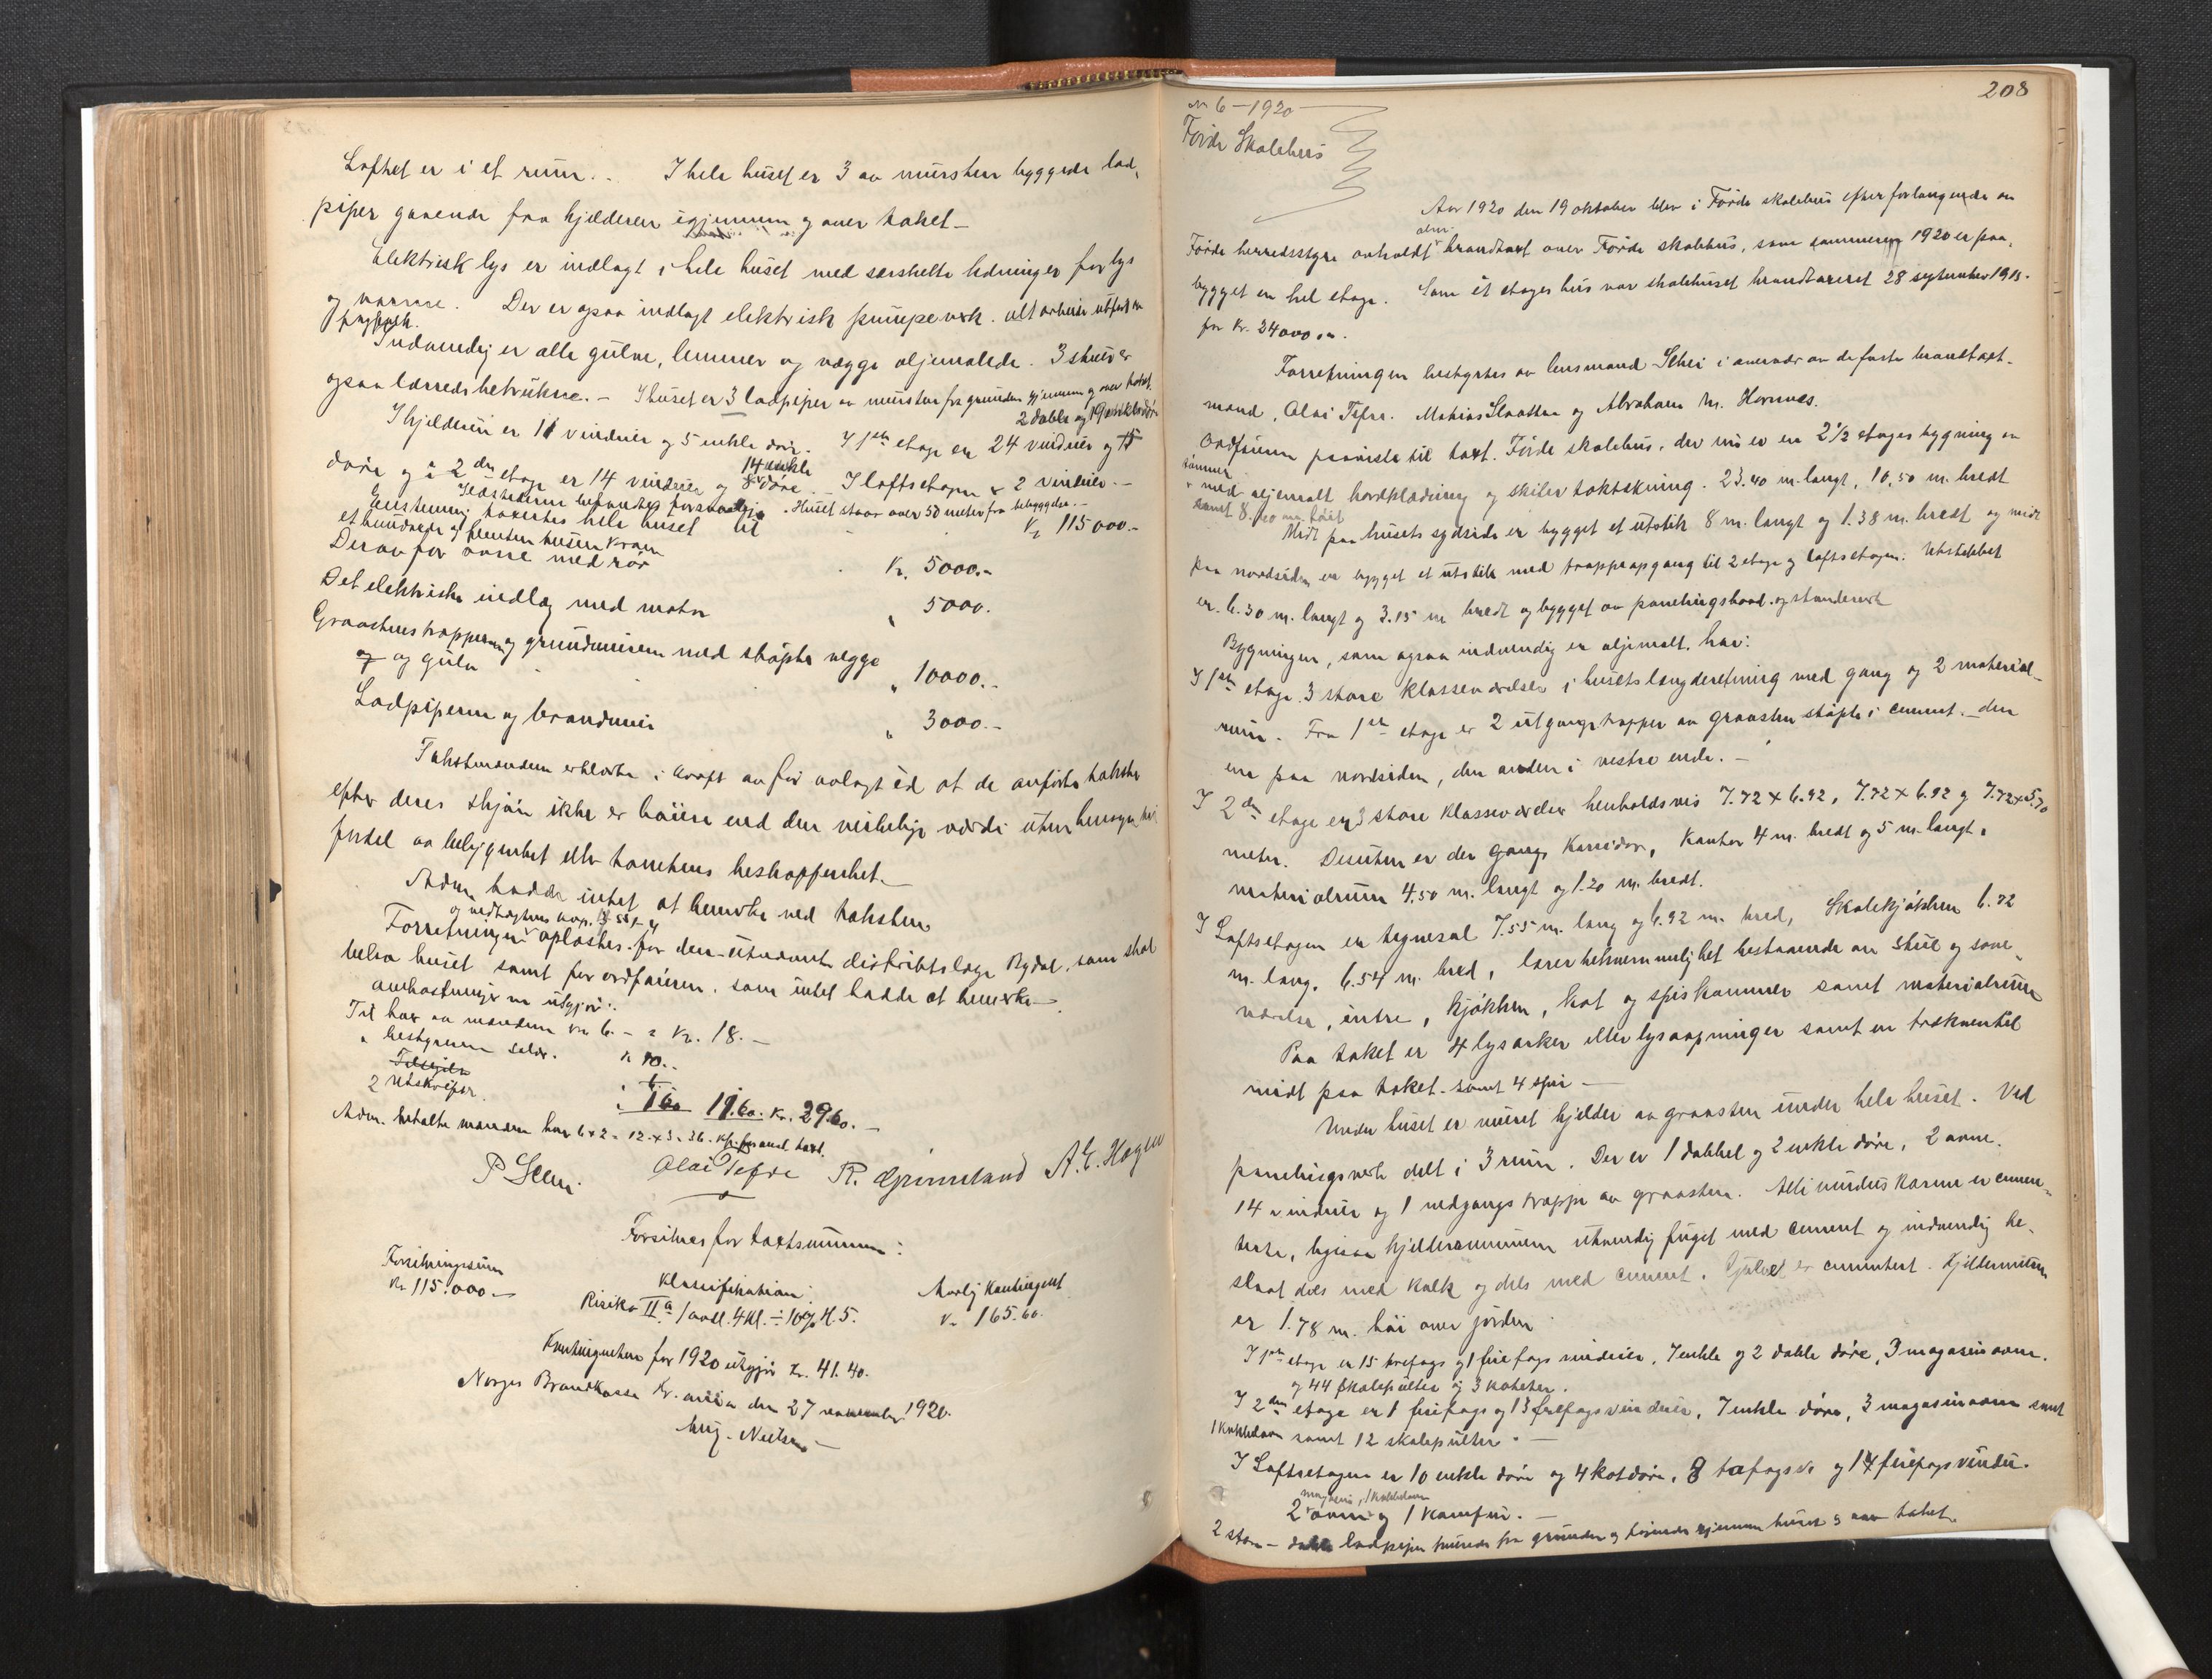 Loftet er i et rum. . I hele huset er 3 av mursten byggede lad-
piper gaaende fra kjælderen igjennem og over taket –
Elektrisk lys er indlagt i hele huset med særskilte ledninger for lys
og varme. Der er ogsaa indlagt elektrisk pumpeverk. alt arbeide utført av
fagfolk.
Indvendig er alle gulve, lemmer og vægge oljemalede. 3 stuer er
ogsaa lærredsbetrukne. – I huset er 3 ladpiper av mursten fra grunden gjennem og over taket.
2 doble og 19 enkle døre
I kjælderen er 11 vinduer og 5 enkle døre. I 1ste etage er 24 vinduer og 15
14 enkle
døre og i 2den etage er 14 vinduer og 8 døre. – I loftsetagen er 2 vinduer. –
Ildstederne befandtes forsvarlige. Huset staar over 50 meter fra bebyggelse. –
Enstemmig taxertes hele huset til Kr 115000.–
et hundrede og femten tusen kroner
Derav for ovne med rør Kr. 5000.–
Det elektriske indlæg med motor " 5000.
Graastenstrapperne og grundmuren med støpte vegge
og og gulv " 10000.–
Ladpiperne og brandmur " 3000.–
Takstmændene erklærte i kraft av før avlagt ed at de anførte takster
efter deres skjøn ikke er høiere end den virkelige værdi uten hensyn til
fordel av beliggenhet eller tomtens beskaffenhet. –
Adm. hadde intet at bemerke ved taksten
og vedtægtens kap.
Forretningen oplæstes for den utnævnte distriktslæge Rydal, som skal
bebo huset samt for ordføreren, som intet hadde at bemerke –
omkostninger er utgjør:
Til hver av mændene kr 6. – = Kr. 18. –
" bestyreren selv. " 10. –
Tilsigelse
2 Utskrifter. 1.60 11.60. Kr. 29.60. –
Adm. betalte mændene hver 6 x 2 = 12 x 3 = 36.
P Schei. Olai Tefre R. Grimeland A. E. Hagen
Forsikres for taxtsummen:
Forsikringssum Klassifikation: Aarlig Kontingent
Kr. 115.000. – Risiko IIa 1 avd. 4 Kl. ÷ 10% H. 5. Kr. 165.60.
Kontingenten for 1920 utgjør Kr. 41.40.
Norges Brandkasse Kr.ania den 27 november 1920.
Aug. Nielsen –
208
No 6 – 1920
Førde Skolehus
Aar 1920 den 19 oktober blev i Førde skolehus efter forlangende av
Førde herredsstyre avholdt brandtaxt over Førde skolehus, som sommeren 1920 er paa-
bygget en hel etage. Som et etages hus var skolehuset brandtaxeret 28 september 1915.
for Kr. 24000.00.
Forretningen bestyrtes av lensmand Schei i overvær av de faste brandtaxt-
mænd, Olai Tefre. Mathias Slaatten og Abraham M. Hornnes.
Ordføreren paaviste til taxt. Førde skolehus, der nu er en 2 1/2 etages bygning av
tømmer
med oljemalt bordklædning og skifer taktækning. 23.40 m. langt, 10,50 m. bredt
samt 8.00 m. høit
Midt paa husets sydside er bygget et utstik 8 m. langt og 1.38 m. bredt og midt
paa nordsiden er bygget et utstik med trappeopgang til 2 etage og loftsetagen. Utstikket
er 6.30 m. langt og 3.15 m bredt og bygget av panelingsbord og standerverk
Bygningen, som ogsaa indvendig er oljemalt, har:
I 1ste etage 3 store klasseværelser i husets længderetning med gang og 2 material-
rum. Fra 1ste etage er 2 utgangstrapper av graasten støpt i cement. – den
ene paa nordsiden, den anden i vestre ende. –
I 2den etage er 3 store klasseværelser henholdsvis 7.72 x 6.92, 7.72 x 6.92 og 7.72 x 5.70
meter. Desuten er der gangs korridor, Kontor 4 m. bredt og 5 m. langt,
materialrum 4.50 m. langt og 1.20 m. bredt.
I Loftsetagen er tegnesal 7.55 m. lang og 6.92 m. bred, Skolekjøkken 6.72
m. lang, 6.54 m. bred, lærerbekvemmelighet bestaaende av stue og sove-
værelse, entre, kjøkken, kot og spiskammer samt materialrum
Paa taket er 4 lysarker eller lysaapninger samt en trækventil
midt paa taket. samt 4 spir –
Under huset er muret kjelder av graasten under hele huset. Ved
panelingsverk delt i 3 rum. Der er 1 dobbel og 2 enkle døre, 2 ovne.
14 vinduer og 1 nedgangs trappe av graasten. Alle vindues karme er cemen-
terte, ligesaa kjeldermurene utvendig fuget med cement og indvendig be-
slaat dels med kalk og dels med cement. Gulvet er cementert. Kjeldermuren
er 1.78 m. høi over jorden
I 1ste etage er 15 trefags og 1 firefags vinduer, 7 enkle og 2 doble døre, 3 magasinovne.
og 44 skolepulter og 3 kateter.
I 2den etage er 1 firefags og 13 trefagsvinduer, 7 enkle døre, 3 magasinovne samt
1 kokkelovn samt 12 skolepulter. –
I Loftsetagen er 10 enkle døre og 4 kotdøre, 8 tofags og 14 firefagsvindu.
magasin, 1 kokkelovn
2 ovne og 1 komfur. –
2 store – doble ladpiper murede fra grunden og førende gjennem huset og over taket.